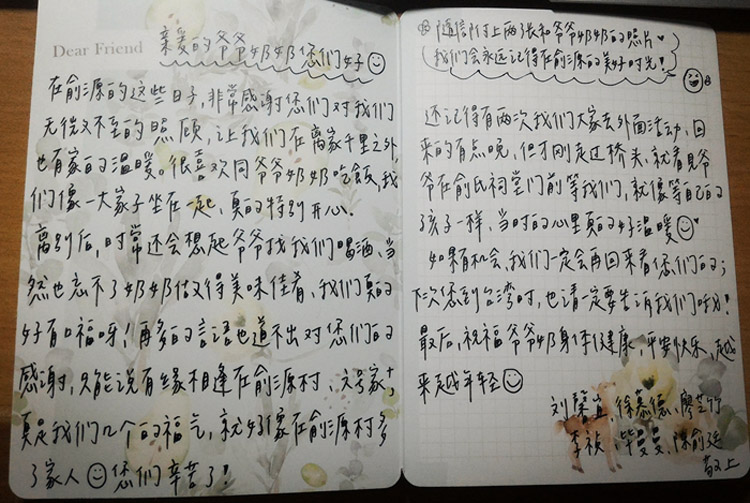 Dear Friend
亲爱的爷爷奶奶您们好
在俞源的这些日子,非常感谢您们对我们
无微不至的照顾,让我们在离家千里之外,
也有家的温暖。很喜欢同爷爷奶奶吃饭,我
们像一大家子坐在一起,真的特别开心。
离别后,时常还会想起爷爷找我们喝酒,当
然也忘不了奶奶做得美味佳肴,我们真的
好有口福呀!再多的言语也道不出对您们的
感谢,只能说有缘相逢在俞源村、
真是我们几个的福气,就好像在俞源村多
了家人 您们辛苦了!
随信附上两张和爷爷奶奶的照片
我们会永远记得在俞源的美好时光!
还记得有两次我们大家去外面活动,回
来的有点晚,但才刚走过桥头,就看见爷
爷在俞氏祠堂门前等我们,就像等自己的
孩子一样,当时的心里真的好温暖
如果有机会,我们一定会再回来看您们的;
下次您到台湾时,也请一定要告诉我们哦!
最后,祝福爷爷奶身体健康,平安快乐,越
来越年轻
刘馨宜、徐慕德、廖芷竹
李祯、毕曼曼、陈俞廷
敬上